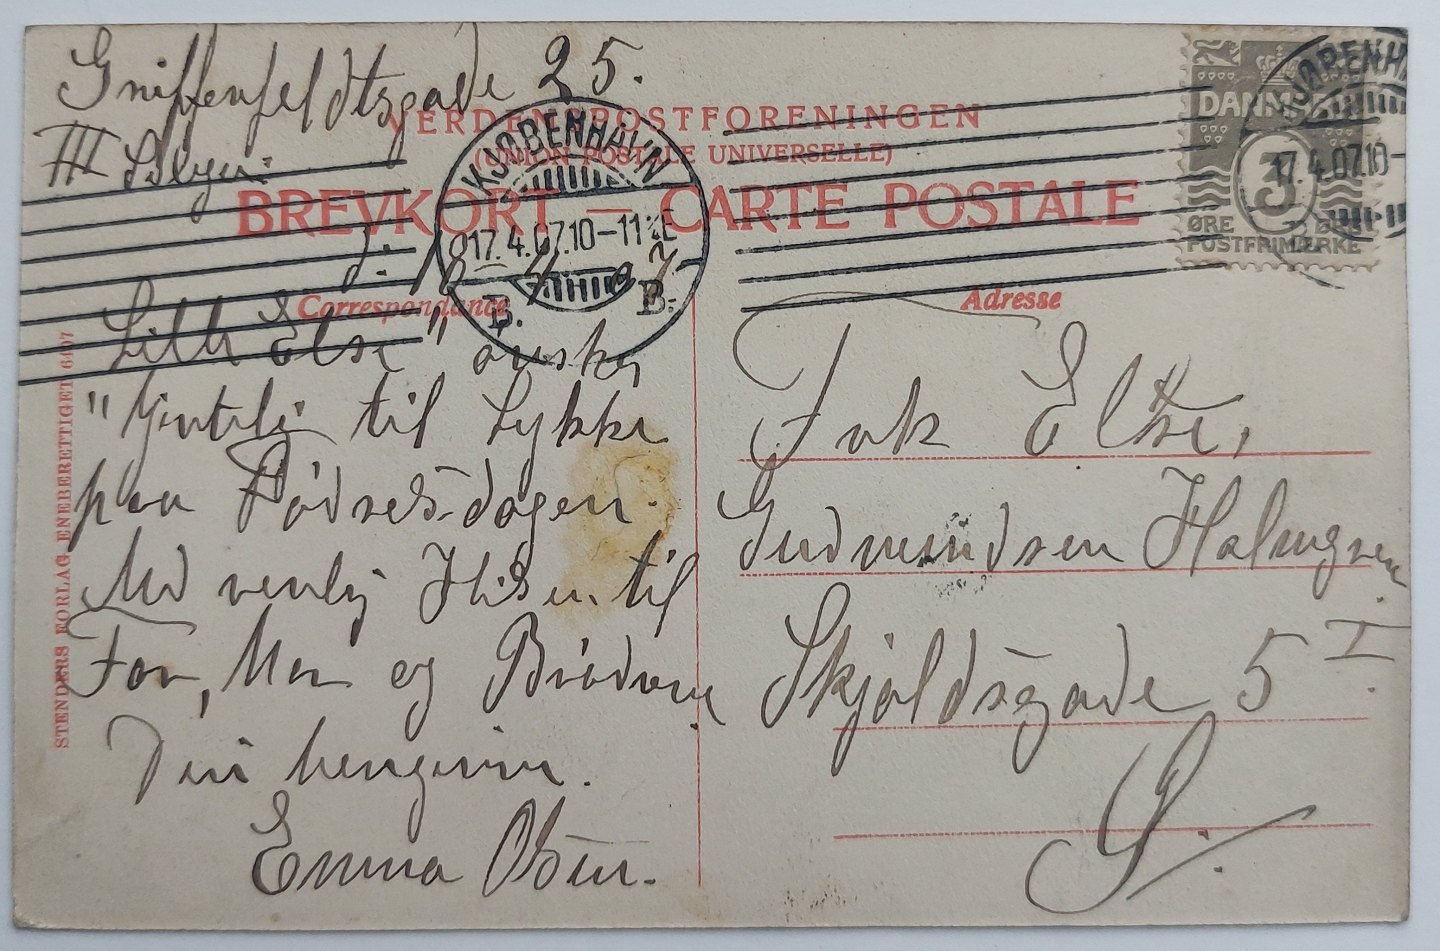 Griffenfeldtsgade 25.
III
VERDENSPOSTFORENINGEN
(UNION POSTALE UNIVERSELLE)
BREVKORT — CARTE POSTALE
KJØBENHAVN
17.4.07.10-11
B. B.
KJØBENHAVN
17.4.07.10-
DANMARK
3
ØRE ØRE
POSTFRIMÆRKE
Correspondance
Adresse
Lille Else" ønskes
"Hjertelig til Lykke
paa Fødselsdagen.
Med venlig Hilsen til
Far, Mor og Brødrene
Din hengivne.
Emma Olsen.
Frk Else,
Gudmundsen Holmgreen
Skjoldsgade 5 I.
Ø.
STENDERS FORLAG ENEBERETTIGET 6497